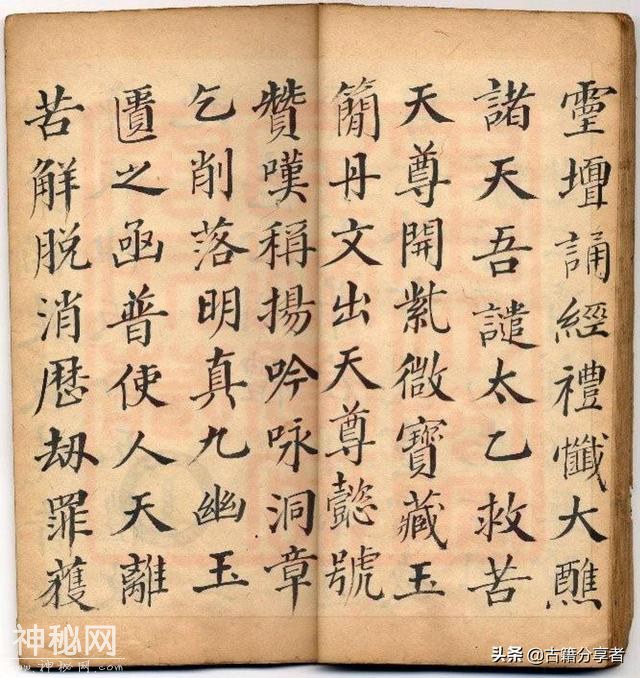 霊壇誦經禮懺大醮
諸天吾譴太乙救苦
天尊開紫微寳藏玉
簡丹文出天尊懿號
贊嘆稱揚吟咏洞章
乞削落明真九幽玉
匱之函普使人天離
苦解脱消歴劫罪獲
神秘网
www.神秘网.com
头条 @古籍分享者